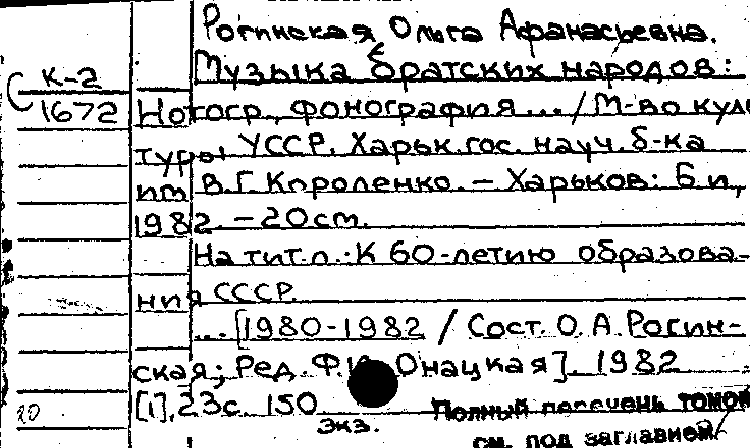 Рогинская Ольга Афанасьевна.
Музыка братских народов:
К-2
1672
Нотогр., фонография ... / М-во куль
туры УССР. Харьк. гос. науч. б-ка
им. В.Г. Короленко. — Харьков: Б.и.,
1982. — 20 см.
На тит. л.: К 60-летию образова-
ния СССР.
... [1980-1982 / Сост. О.А. Рогин-
ская; Ред. Ф. Онацкая]. 1982
[1], 23с. 150
экз.
20
Полный перечень томов
см. под заглавием